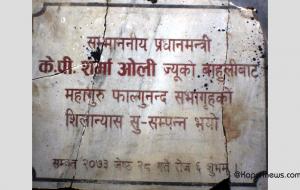 सम्माननीय प्रधानमन्त्री
के.पी. शर्मा ओली ज्यूको बाहुलीबाट
महागुरु फाल्गुनन्द सभागृहको
शिलान्यास सु-सम्पन्न भयो
सम्वत २०७३ जेष्ठ २८ गते रोज ६ शुभम्
©Kopennews.com